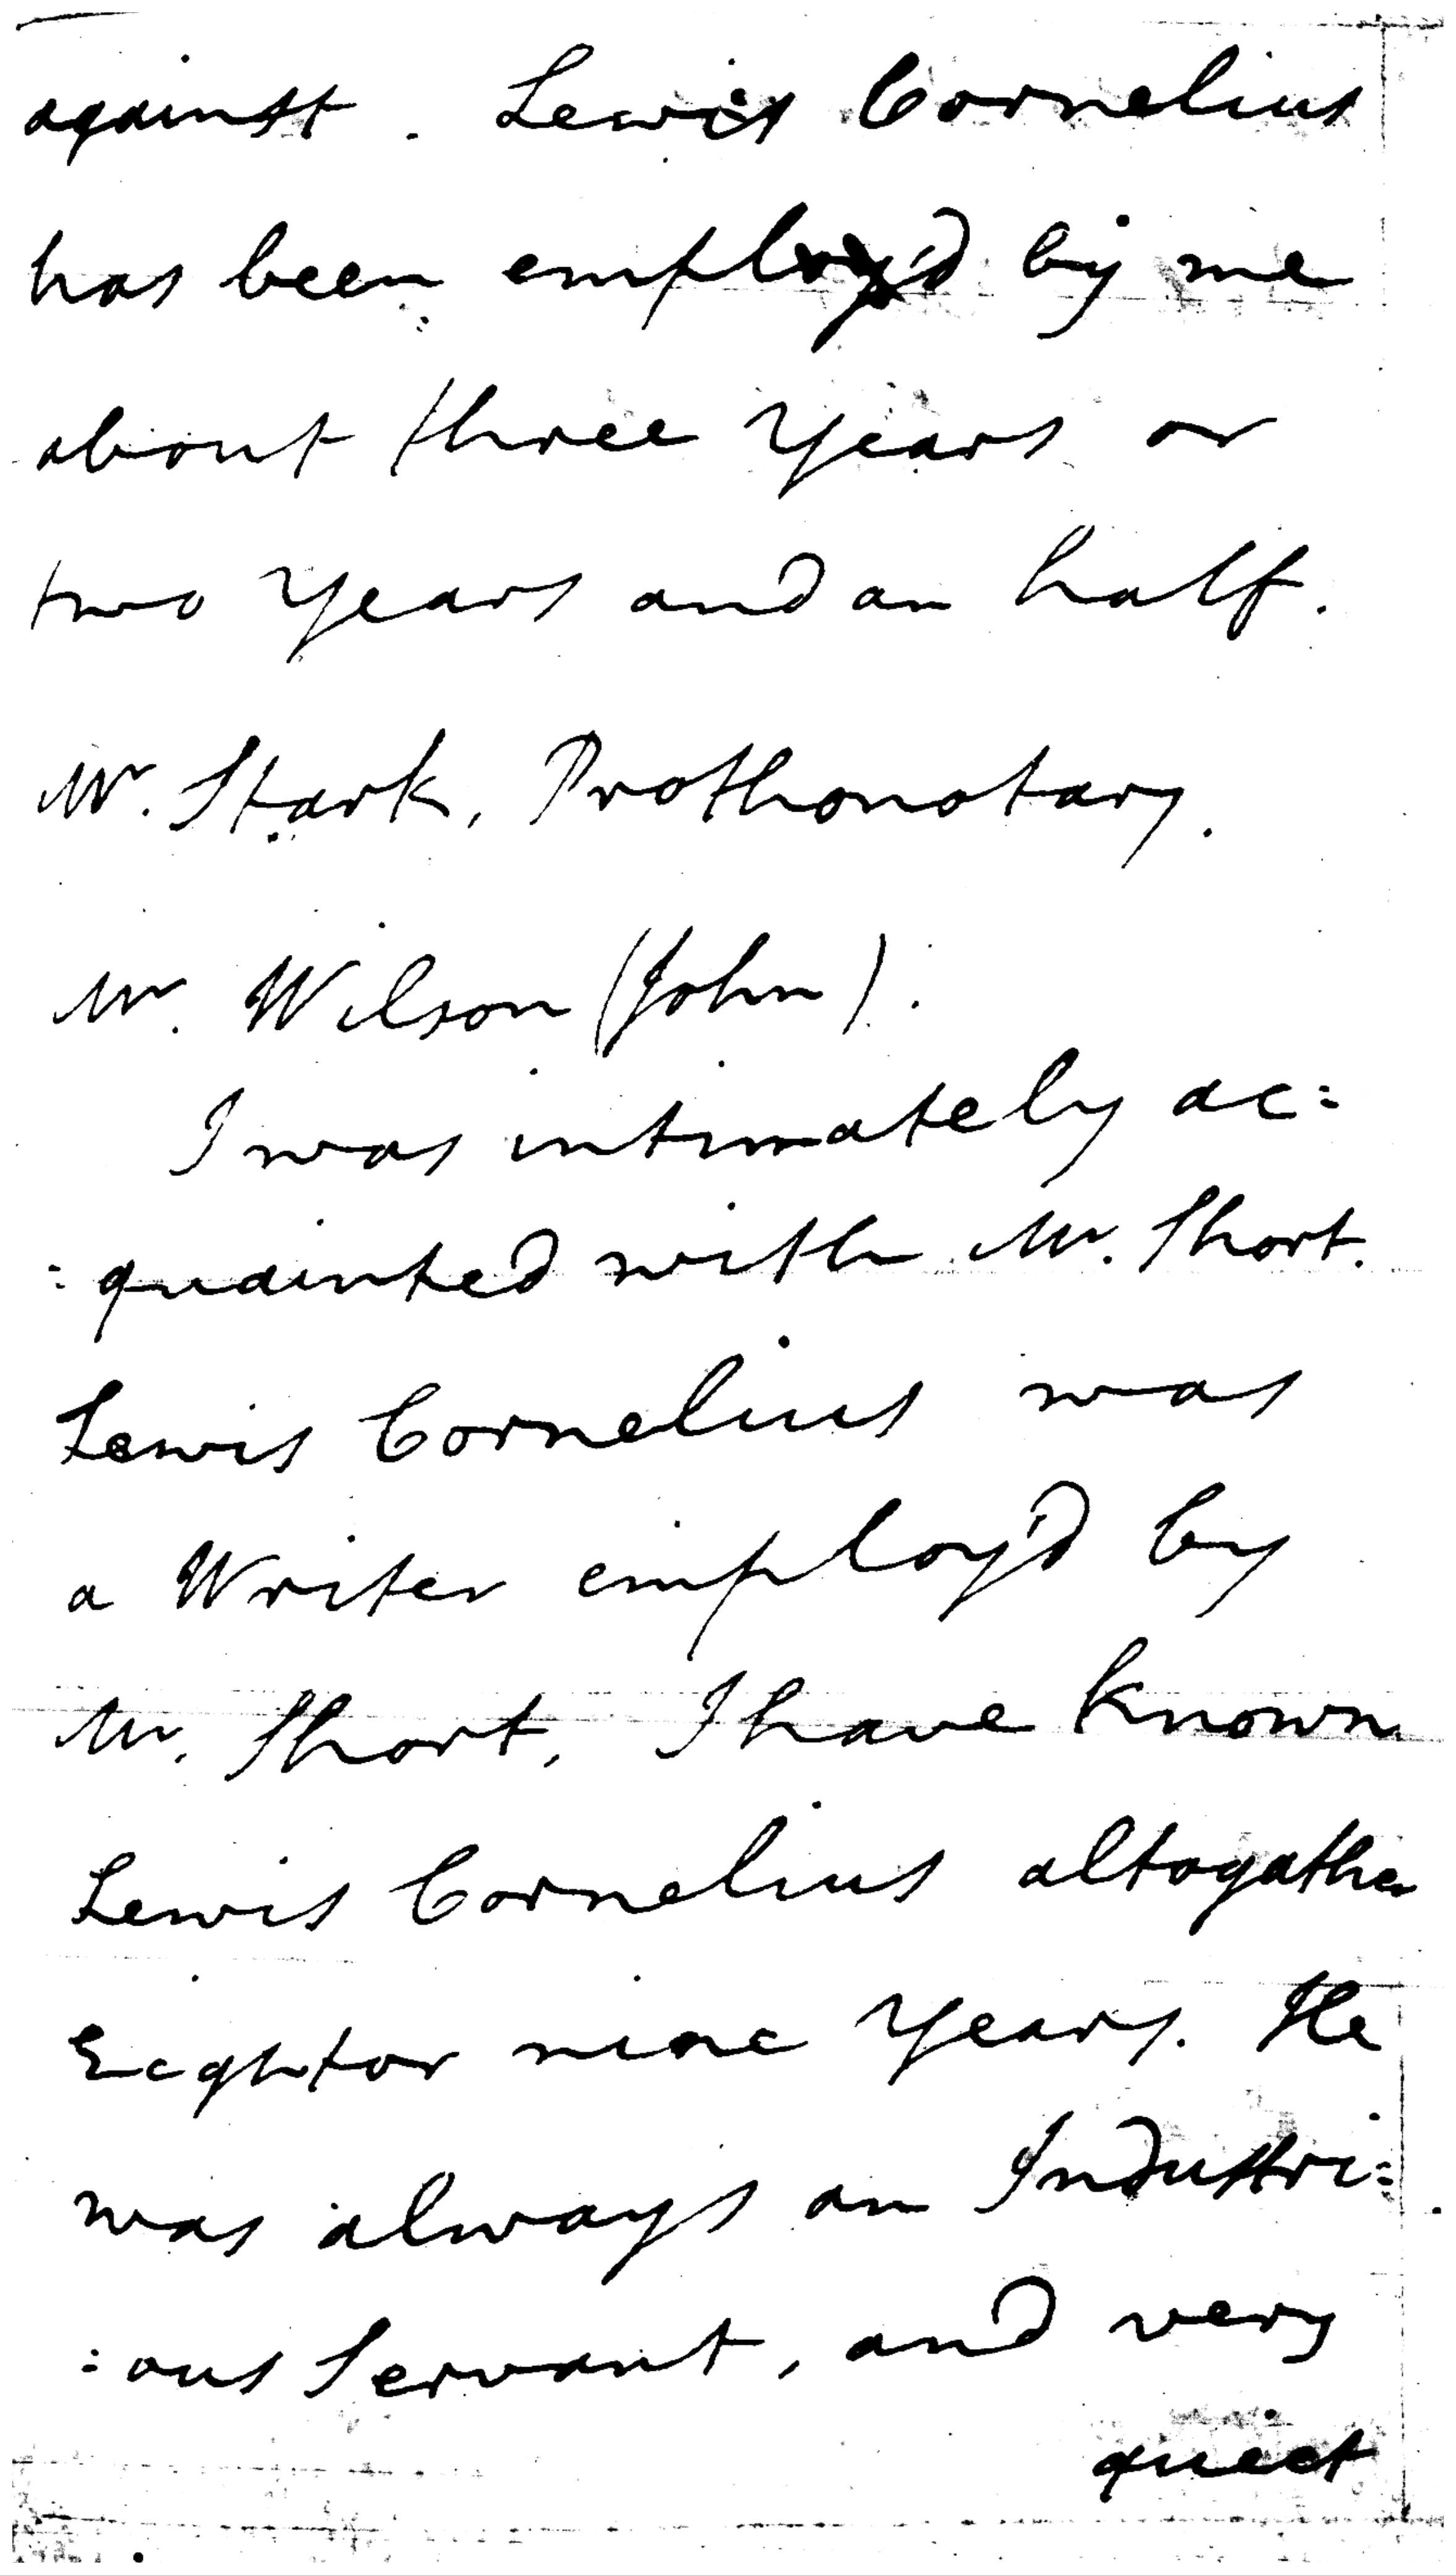 against. Lewis Cornelius
has been employ'd by me
about three Years or
two Years and an half.
Mr. Stark, Prothonotary.
Mr. Wilson (John).
I was intimately ac=
=quainted with Mr. Short.
Lewis Cornelius was
a Writer employ'd by
Mr. Short, I have known
Lewis Cornelius altogather
Eight or nine Years. He
was always an Industri=
=ous Servant, and very
quiet